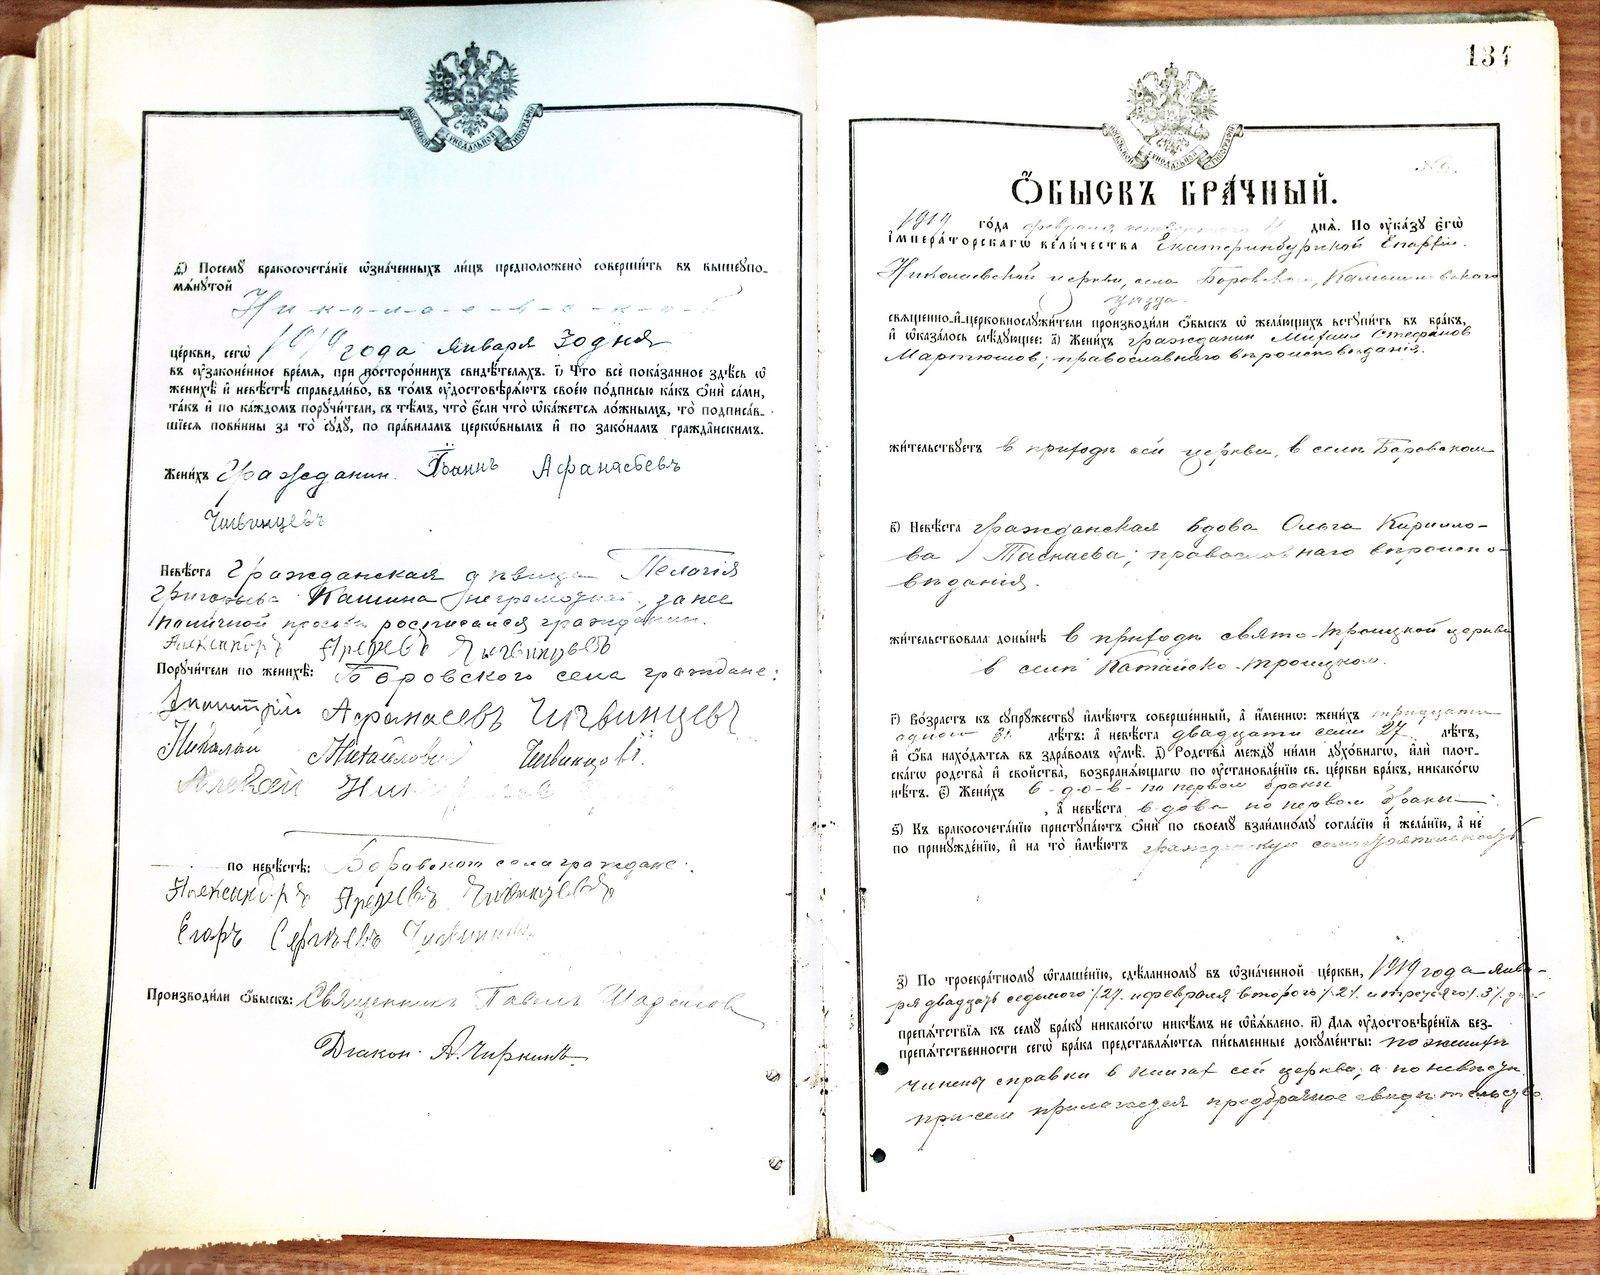 МОСКОВСКОЙ СѴНОДАЛЬНОЙ ТИПОГРАФІИ
д҃) Посемꙋ бракосочета́нїе ѡ҆зна́ченныхъ ли́цъ предположено̀ соверши́ть въ вышеꙋпо-
мѧ́нꙋтой
Н и к о л а е в с к о й
це́ркви, сегѡ̀ 1919 года января 30 дня
въ ᲂу҆зако́ненное вре́мя, при посторо́ннихъ свидѣ́телѧхъ. і҃) Что̀ всѐ пока́занное здѣ́сь ѡ҆
женихѣ̀ и҆ невѣ́стѣ справедли́во, въ то́мъ ᲂу҆достовѣрѧ́ютъ свое́ю по́дписью ка́къ ѻ҆нѝ са́ми,
та́къ и҆ по ка́ждомъ порꙋчи́тели, съ тѣ́мъ, что̀ є҆́сли что̀ ѡ҆ка́жется ло́жнымъ, то̀ подписа́в-
шїеся пови́нны за то̀ сꙋдꙋ̀, по пра́виламъ церко́внымъ и҆ по зако́намъ гражда́нскимъ.
Жени́хъ Гражданин. Іоаннъ Афанасьевъ
Чивинцевъ
Невѣ́ста Гражданская девица Пелагія
Григорьева Кашина неграмотная, за нее
по личной просьбе росписался гражданин.
Александръ Чывинцевъ
Порꙋчи́тели по женихѣ̀: Боровского села граждане:
Дмитрій Афанасьевъ Чивинцевъ
Николай Михайловъ Чивинцовъ.
Алексей
по невѣ́стѣ: Боровского села граждане:
Александръ Чивинцевъ
Егоръ Сергѣевъ Чивинцевъ
Производи́ли ѻ҆́быскъ: Священникъ Павелъ
Діакон А. Чиркинъ
134
МОСКОВСКОЙ СѴНОДАЛЬНОЙ ТИПОГРАФІИ
№
Ѻ҆́БЫСКЪ БРА́ЧНЫЙ.
1919 го́да февраля четвертого 4 днѧ̀. По ᲂу҆ка́зꙋ є҆гѡ̀
і҆мпера́торскагѡ вели́чества Екатеринбургской Епархіи.
Николаевской церкви, села Боровского, Камышловского
уезда.
свѧще́нно-и҆-церковнослꙋжи́тели производи́ли ѻ҆́быскъ ѡ҆ жела́ющихъ встꙋпи́ть въ бра́къ,
и҆ ѡ҆каза́лось слѣ́дꙋющее: а҃) Жени́хъ гражданин Михаил Стефанов
Мартюшов; православнаго вероисповеданія.
жи́тельствꙋетъ в приходе сей церкви, в селе Боровском
в҃) Невѣ́ста гражданская вдова Ольга Кирилло-
ва Таскаева; православнаго вероиспо-
веданія.
жи́тельствовала доны́нѣ в приходе свято-троицкой церкви
в селе Катайско-троицком.
г҃) Во́зрастъ къ сꙋпрꙋ́жествꙋ и҆мѣ́ютъ соверше́нный, а҆ и҆́менно: жени́хъ тридцати
одного 31 лѣ́тъ: а҆ невѣ́ста двадцати семи 27 лѣ́тъ,
и҆ ѻ҆́ба нахо́дятся въ здра́вомъ ᲂу҆мѣ̀. д҃) Родства̀ междꙋ ни́ми дꙋхо́внагѡ, и҆лѝ плот-
ска́гѡ родства̀ и҆ сво́йства, возбранѧ́ющагѡ по ᲂу҆становле́нїю св. це́ркви бра́къ, никако́гѡ
нѣ́тъ. є҃) Жени́хъ в-д-о-в- по первом браке
, а҆ невѣ́ста вдова по первом браке
ѕ҃) Къ бракосочета́нїю пристꙋпа́ютъ ѻ҆нѝ по своемꙋ̀ взаи́мномꙋ согла́сїю и҆ жела́нїю, а҆ не
по принꙋжде́нїю, и҆ на то̀ и҆мѣ́ютъ гражданскую самостоятельность
з҃) По троекра́тномꙋ ѡ҆глаше́нїю, сдѣ́ланномꙋ въ ѡ҆зна́ченной це́ркви, 1919 года янва-
ря двадцать седьмого /27/ и февраля второго /2/ и третьего /3/ дней
препѧ́тствїѧ къ семꙋ̀ бра́кꙋ никако́гѡ никѣ́мъ не ѡ҆б̾ѧ́влено. и҃) Для ᲂу҆достовѣре́нїѧ без-
препѧ́тственности сегѡ̀ бра́ка представля́ются пи́сьменные докꙋме́нты: по женихе
чинены справки в книгах сей церкви; а по невесте
при сем прилагается предбрачное свидетельство.